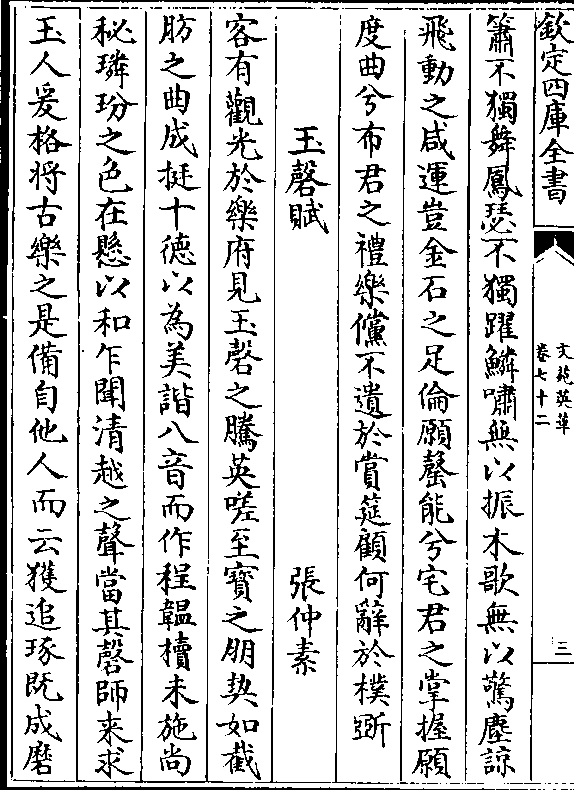 欽定四庫全書
文苑英華
卷七十二
三
簫不獨舞鳳瑟不獨躍鱗嘯無以振木歌無以驚塵諒
飛動之咸運豈金石之足倫願罄能兮宅君之掌握願
度曲兮布君之禮樂儻不遺於賞筵顧何辭於樸斲
玉磬賦
張仲素
客有觀光於樂府見玉磬之騰英嗟至寶之朋契如截
肪之曲成挺十德以為美諧八音而作程韞櫝未施尚
秘璘玢之色在懸以和乍聞清越之聲當其磬師来求
玉人爰格将古樂之是備自他人而云獲追琢既成磨